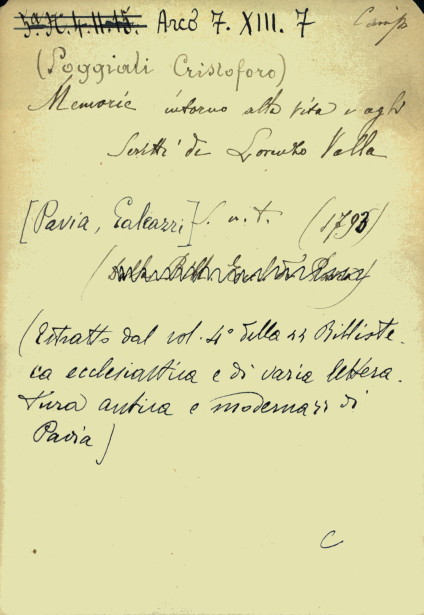 Arcò 7. XIII. 7
(Poggiali Cristoforo)
Memorie intorno alla vita e agli
scritti di Lorenzo Valla
[Pavia, Galeazzi] s. n. t. (1793)
(Estratto dal vol. 4° della "Bibliote-
ca ecclesiastica e di varia lettera-
tura antica e moderna" di
Pavia)
C